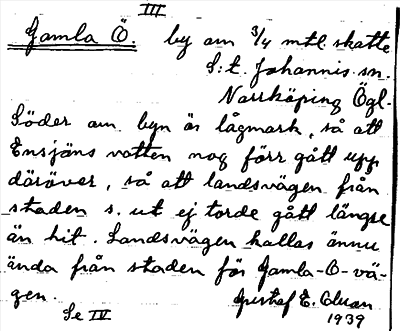 III
Gamla Ö. by om 3/4 mtl skatte
S:t Johannis sn.
Norrköping Ögl.
Söder om byn är lågmark, så att
Ensjöns vatten nog förr gått upp
däröver, så att landsvägen från
staden s. ut ej torde gått längre
än hit. Landsvägen kallas ännu
ända från staden för Gamla-Ö-vä-
gen. Gustaf E.
Se IV 1939